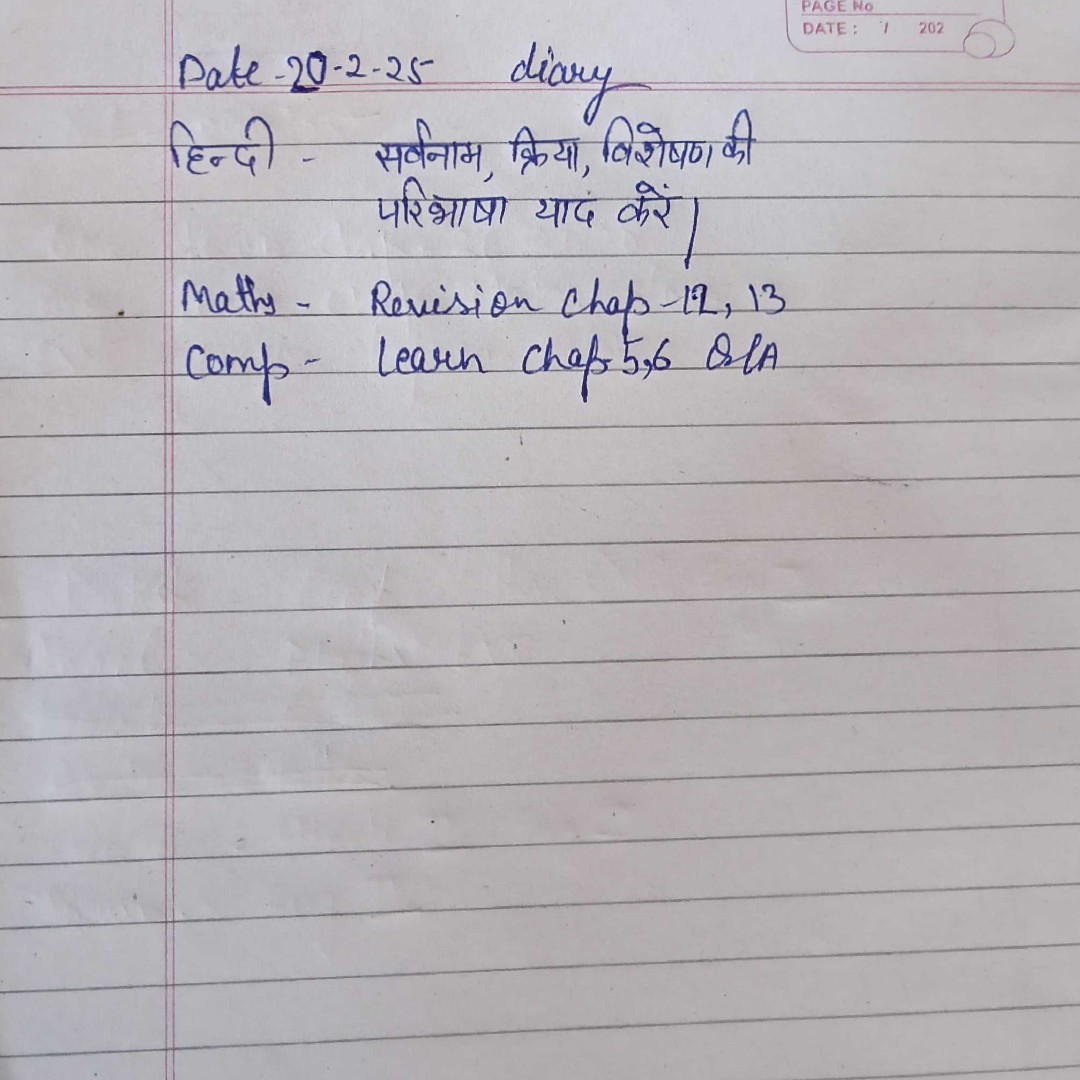 PAGE No
DATE: / 202
Date -20-2-25 diary
हिन्दी - सर्वनाम, क्रिया, विशेषण की
परिभाषा याद करें।
Maths - Revision Chap -12, 13
Comp - Learn Chap 5,6 Q/A